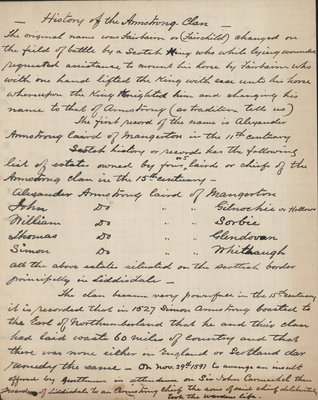 — History of the Armstrong Clan —
The original name was Fairbairn (or Fairchild) changed on
the field of battle by a Scotch King who while lying wounded
requested assistance to mount his horse by Fairbairn who
with one hand lifted the King with ease unto his horse
whereupon the King Knighted him and changing his
name to that of Armstrong (as tradition tells us)
The first record of the name is Alexander
Armstrong laird of Mangerton in the 11th century
Scotch history or records has the following
list of estates owned by four lairds or chiefs of the
Armstrong clan in the 15th century —
Alexander Armstrong laird of Mangerton
John Do " " Gilnockie or Hollows
William Do " " Sorbie
Thomas Do " " Glendovan
Simon Do " " Whithaugh
all the above estates situated on the scottish border
principally in Liddisdale —
The clan became very powerful in the 15th century
it is recorded that in 1527 Simon Armstrong boasted to
the Earl of Northumberland that he and this clan
had laid waste 60 miles of country and that
there was none either in England or Scotland dar
remedy the same — On Nov. 29th 1597 to avenge an insult
offered by gentlemen in attendance on Sir John Carmichel then
warden of Liddisdale to an Armstrong chief the sons of said chief deliberately
took the wardens life.